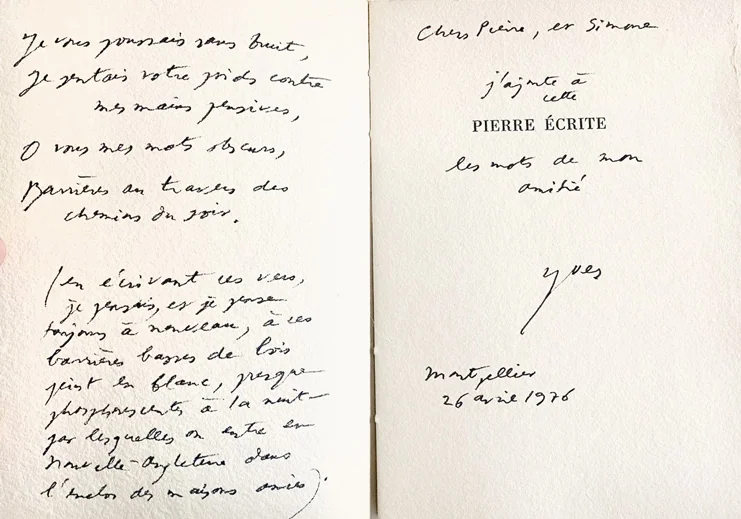 Je vous poussais sans bruit,
je sentais votre poids contre
mes mains pensives,
O vous mes mots obscurs,
Barrières au travers des
chemins du soir.
(en écrivant ces vers,
je pensais, et je pense
toujours à nouveau, à ces
barrières basses de bois
peint en blanc, presque
phosphorescentes à la nuit –
par lesquelles on entre en
Nouvelle-Angleterre dans
l'enclos des maisons amies).
Chers Pierre, et Simone
j'ajoute à
cette
PIERRE ÉCRITE
les mots de mon
amitié
Yves
Montpellier
26 avril 1976